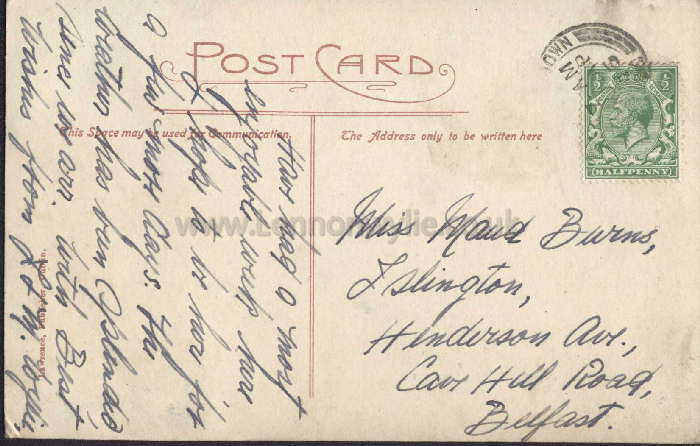 POST CARD
This Space may be used for Communication.
The Address only to be written here
½ ½
HALFPENNY
AM
OWN
Miss Maud Burns,
Islington,
Henderson Ave.,
Cave Hill Road,
Belfast.
Have had a most
enjoyable week here
& hope to be here for
a few more days. The
weather has been splendid
since we arr. with Best
Wishes from J & M. Wylie
Lawrence, Publisher, Dublin.
www.Lennonwylie.co.uk